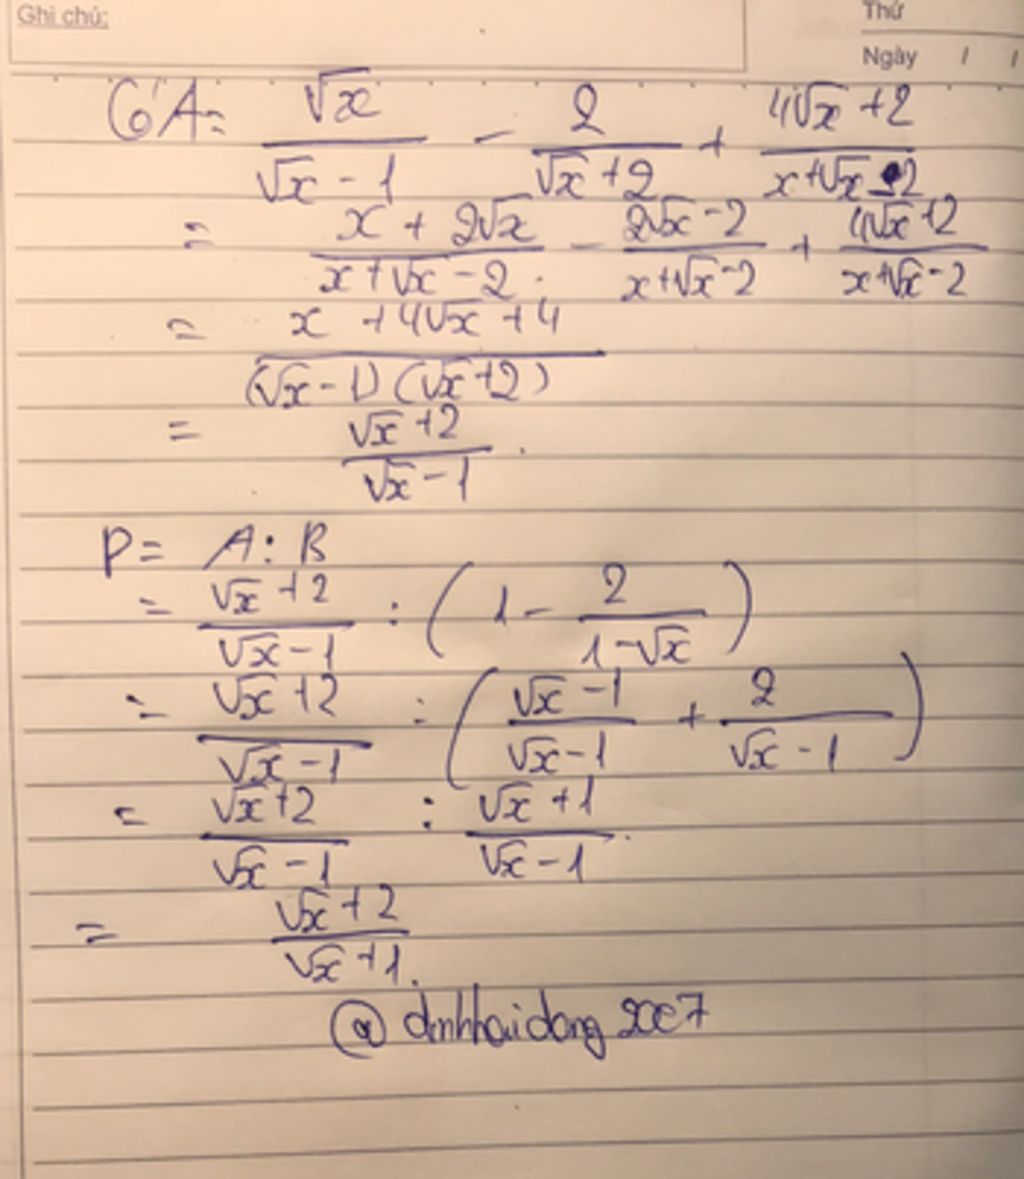 Ghi chú:
Thứ
Ngày / /
Có A = √x/(√x - 1) - 2/(√x + 2) + (4√x + 2)/(x + √x - 2)
= (x + 2√x)/(x + √x - 2) - (2√x - 2)/(x + √x - 2) + (4√x + 2)/(x + √x - 2)
= (x + 4√x + 4)/((√x - 1)(√x + 2))
= (√x + 2)/(√x - 1).
P = A : B
= (√x + 2)/(√x - 1) : (1 - 2/(1 - √x))
= (√x + 2)/(√x - 1) : ((√x - 1)/(√x - 1) + 2/(√x - 1))
= (√x + 2)/(√x - 1) : (√x + 1)/(√x - 1).
= (√x + 2)/(√x + 1).
@dinhhaidang2007